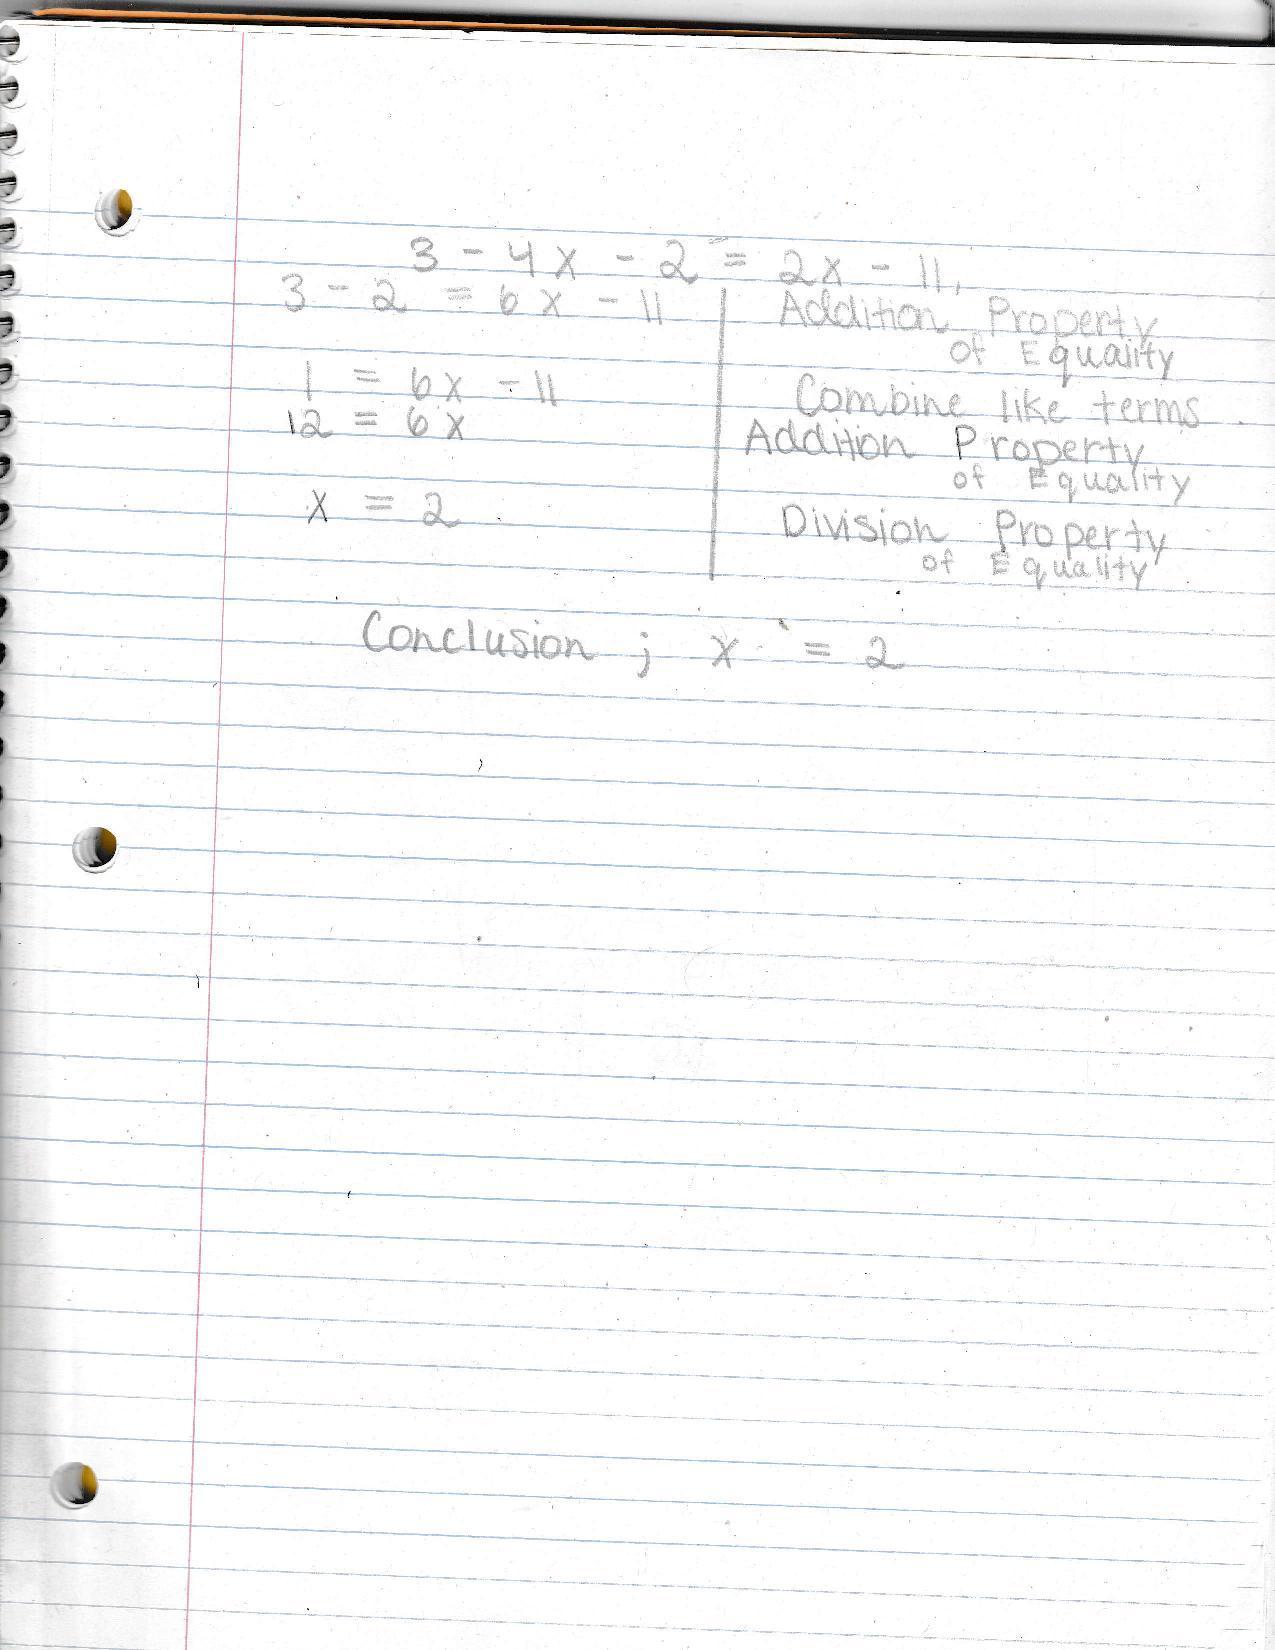 3 - 4x - 2 = 2x - 11,
3 - 2 = 6x - 11 Addition Property
of Equality
1 = 6x - 11 Combine like terms
12 = 6x Addition Property
of Equality
x = 2 Division Property
of Equality
Conclusion ; x = 2